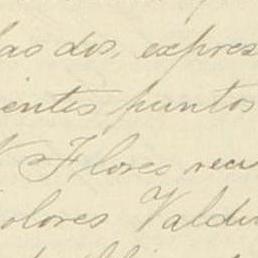 las dos, expres
ientes puntos
Flores recu
olores Valdi